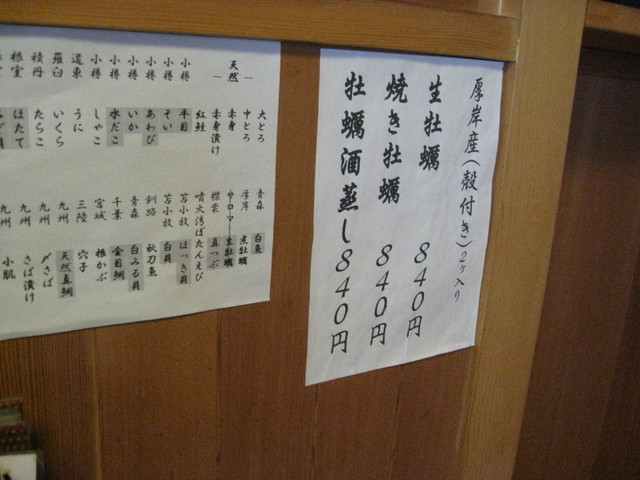 厚岸産(殻付き)2ヶ入り
生牡蠣 840円
焼き牡蠣 840円
牡蠣酒蒸し 840円
天然
大とろ
中とろ
赤身
赤身漬け
紅鮭
小樽 平目
小樽 そい
小樽 あわび
小樽 いか
小樽 水だこ
道東 しゃこ
羅臼 うに
積丹 いくら
根室 たらこ
ほたて
青森 白魚
厚岸 煮牡蠣
サローマ 生牡蠣
襟裳 真つぶ
噴火湾 ぼたんえび
苫小牧 ほっき貝
苫小牧 白貝
釧路 秋刀魚
青森 白みる貝
千葉 金目鯛
宮城
三陸 穴子
九州 天然真鯛
九州 〆さば
九州 さば漬け
九州 小肌